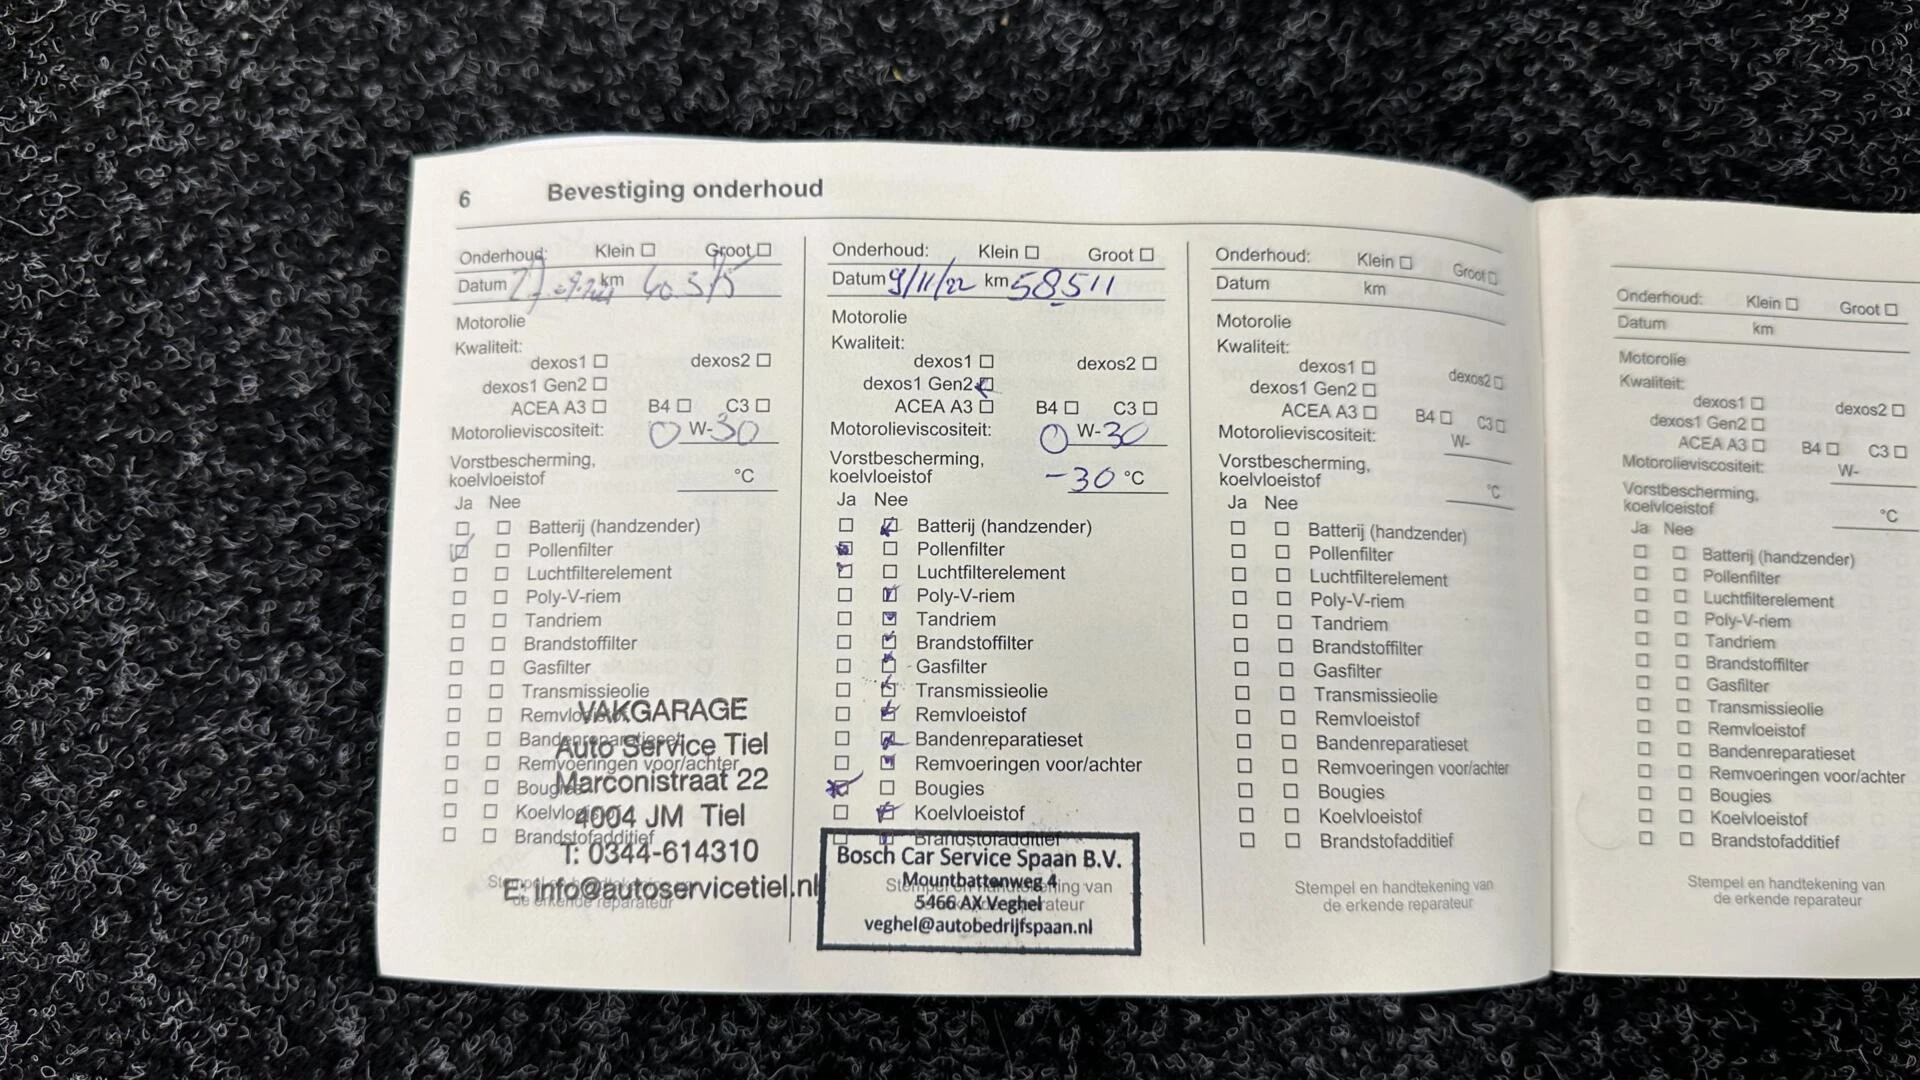 6 Bevestiging onderhoud
Onderhoud: Klein Groot
Datum km
Motorolie
Kwaliteit:
dexos1 dexos2
dexos1 Gen2
ACEA A3 B4 C3
Motorolieviscositeit: 0 W-30
Vorstbescherming,
koelvloeistof °C
Ja Nee
Batterij (handzender)
Pollenfilter
Luchtfilterelement
Poly-V-riem
Tandriem
Brandstoffilter
Gasfilter
Transmissieolie
Remvloeistof
Bandenreparatieset
Remvoeringen voor/achter
Bougies
Koelvloeistof
Brandstofadditief
Stempel en handtekening van
de erkende reparateur
VAKGARAGE
Auto Service Tiel
Marconistraat 22
4004 JM Tiel
T: 0344-614310
E: info@autoservicetiel.nl
Onderhoud: Klein Groot
Datum 9/11/22 km 58511
Motorolie
Kwaliteit:
dexos1 dexos2
dexos1 Gen2
ACEA A3 B4 C3
Motorolieviscositeit: 0 W-30
Vorstbescherming,
koelvloeistof -30 °C
Ja Nee
Batterij (handzender)
Pollenfilter
Luchtfilterelement
Poly-V-riem
Tandriem
Brandstoffilter
Gasfilter
Transmissieolie
Remvloeistof
Bandenreparatieset
Remvoeringen voor/achter
Bougies
Koelvloeistof
Brandstofadditief
Stempel en handtekening van
de erkende reparateur
Bosch Car Service Spaan B.V.
Mountbattenweg 4
5466 AX Veghel
veghel@autobedrijfspaan.nl
Onderhoud: Klein Groot
Datum km
Motorolie
Kwaliteit:
dexos1 dexos2
dexos1 Gen2
ACEA A3 B4 C3
Motorolieviscositeit: W-
Vorstbescherming,
koelvloeistof °C
Ja Nee
Batterij (handzender)
Pollenfilter
Luchtfilterelement
Poly-V-riem
Tandriem
Brandstoffilter
Gasfilter
Transmissieolie
Remvloeistof
Bandenreparatieset
Remvoeringen voor/achter
Bougies
Koelvloeistof
Brandstofadditief
Stempel en handtekening van
de erkende reparateur
Onderhoud: Klein Groot
Datum km
Motorolie
Kwaliteit:
dexos1 dexos2
dexos1 Gen2
ACEA A3 B4 C3
Motorolieviscositeit: W-
Vorstbescherming,
koelvloeistof °C
Ja Nee
Batterij (handzender)
Pollenfilter
Luchtfilterelement
Poly-V-riem
Tandriem
Brandstoffilter
Gasfilter
Transmissieolie
Remvloeistof
Bandenreparatieset
Remvoeringen voor/achter
Bougies
Koelvloeistof
Brandstofadditief
Stempel en handtekening van
de erkende reparateur